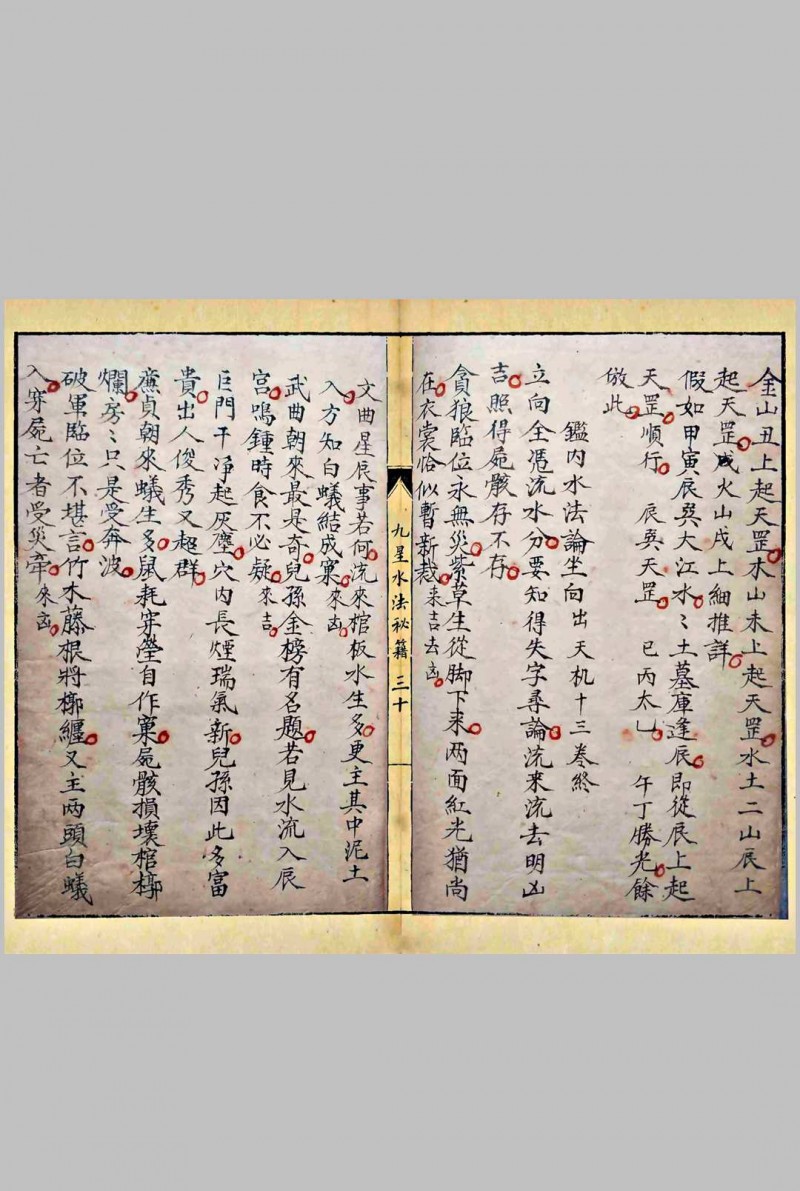 金山丑上起天罡木山未上起天罡水土二山辰上
起天罡火山戌上細推詳
假如甲寅辰巽大江水〻土墓庫逢辰即從辰上起
天罡順行 辰巽天罡 巳丙太乙 午丁勝光餘
倣此
鑑内水法論坐向出天机十三卷終
立向全凴流水分要知得失字尋論流来流去明凶
吉照得屍骸存不存
貪狼臨位永無災紫草生從脚下来两面紅光猶尚
在衣裳恰似暫新裁来吉去凶
九星水法祕籍 三十
文曲星辰事若何流來棺板水生多更主其中泥土
入方知白蟻結成窠來凶
武曲朝來最是奇兒孫金榜有名題若見水流入辰
宫鳴鍾時食不必疑來吉
巨門干净起灰塵穴内長煙瑞氣新兒孫因此多富
貴出人俊秀又超群
廉貞朝來蟻生多鼠耗穿瑩自作窠屍骸損壞棺槨
爛房〻只是受奔波
破軍臨位不堪言竹木藤根將槨纏又主两頭白蟻
入穿屍亡者受災牽來凶